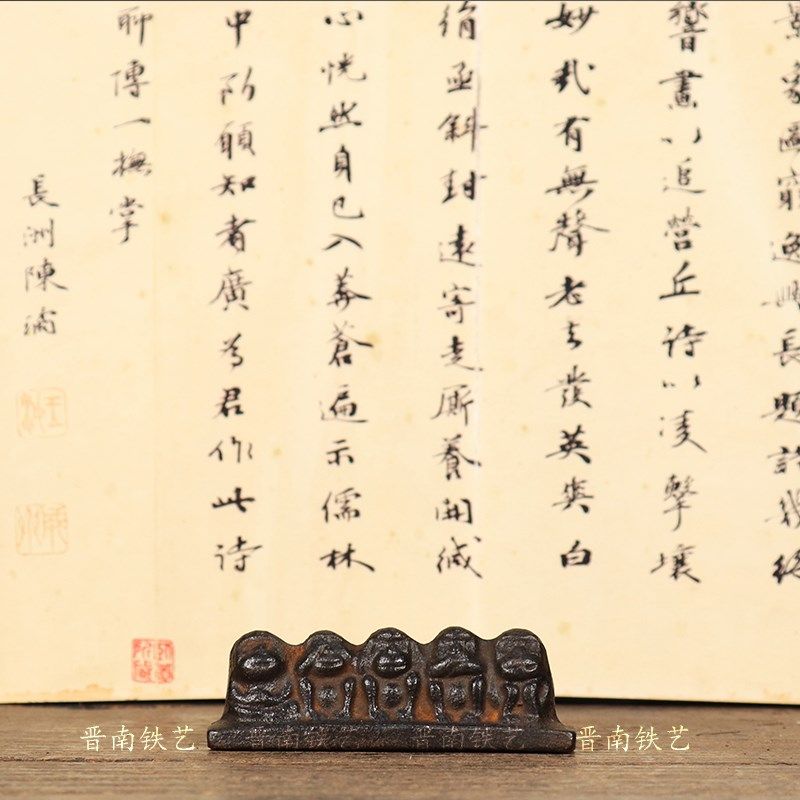 長題
響畫以追營丘詩以凌擊壤
妙哉有無聲老去發英爽白
絹亟斜封遠寄走厮養開緘
心恍然自已入莽蒼遍示儒林
中所願知者廣為君作此詩
聊傳一撫掌
長洲陳
晋南铁艺 晋南铁艺 晋南铁艺 晋南铁艺